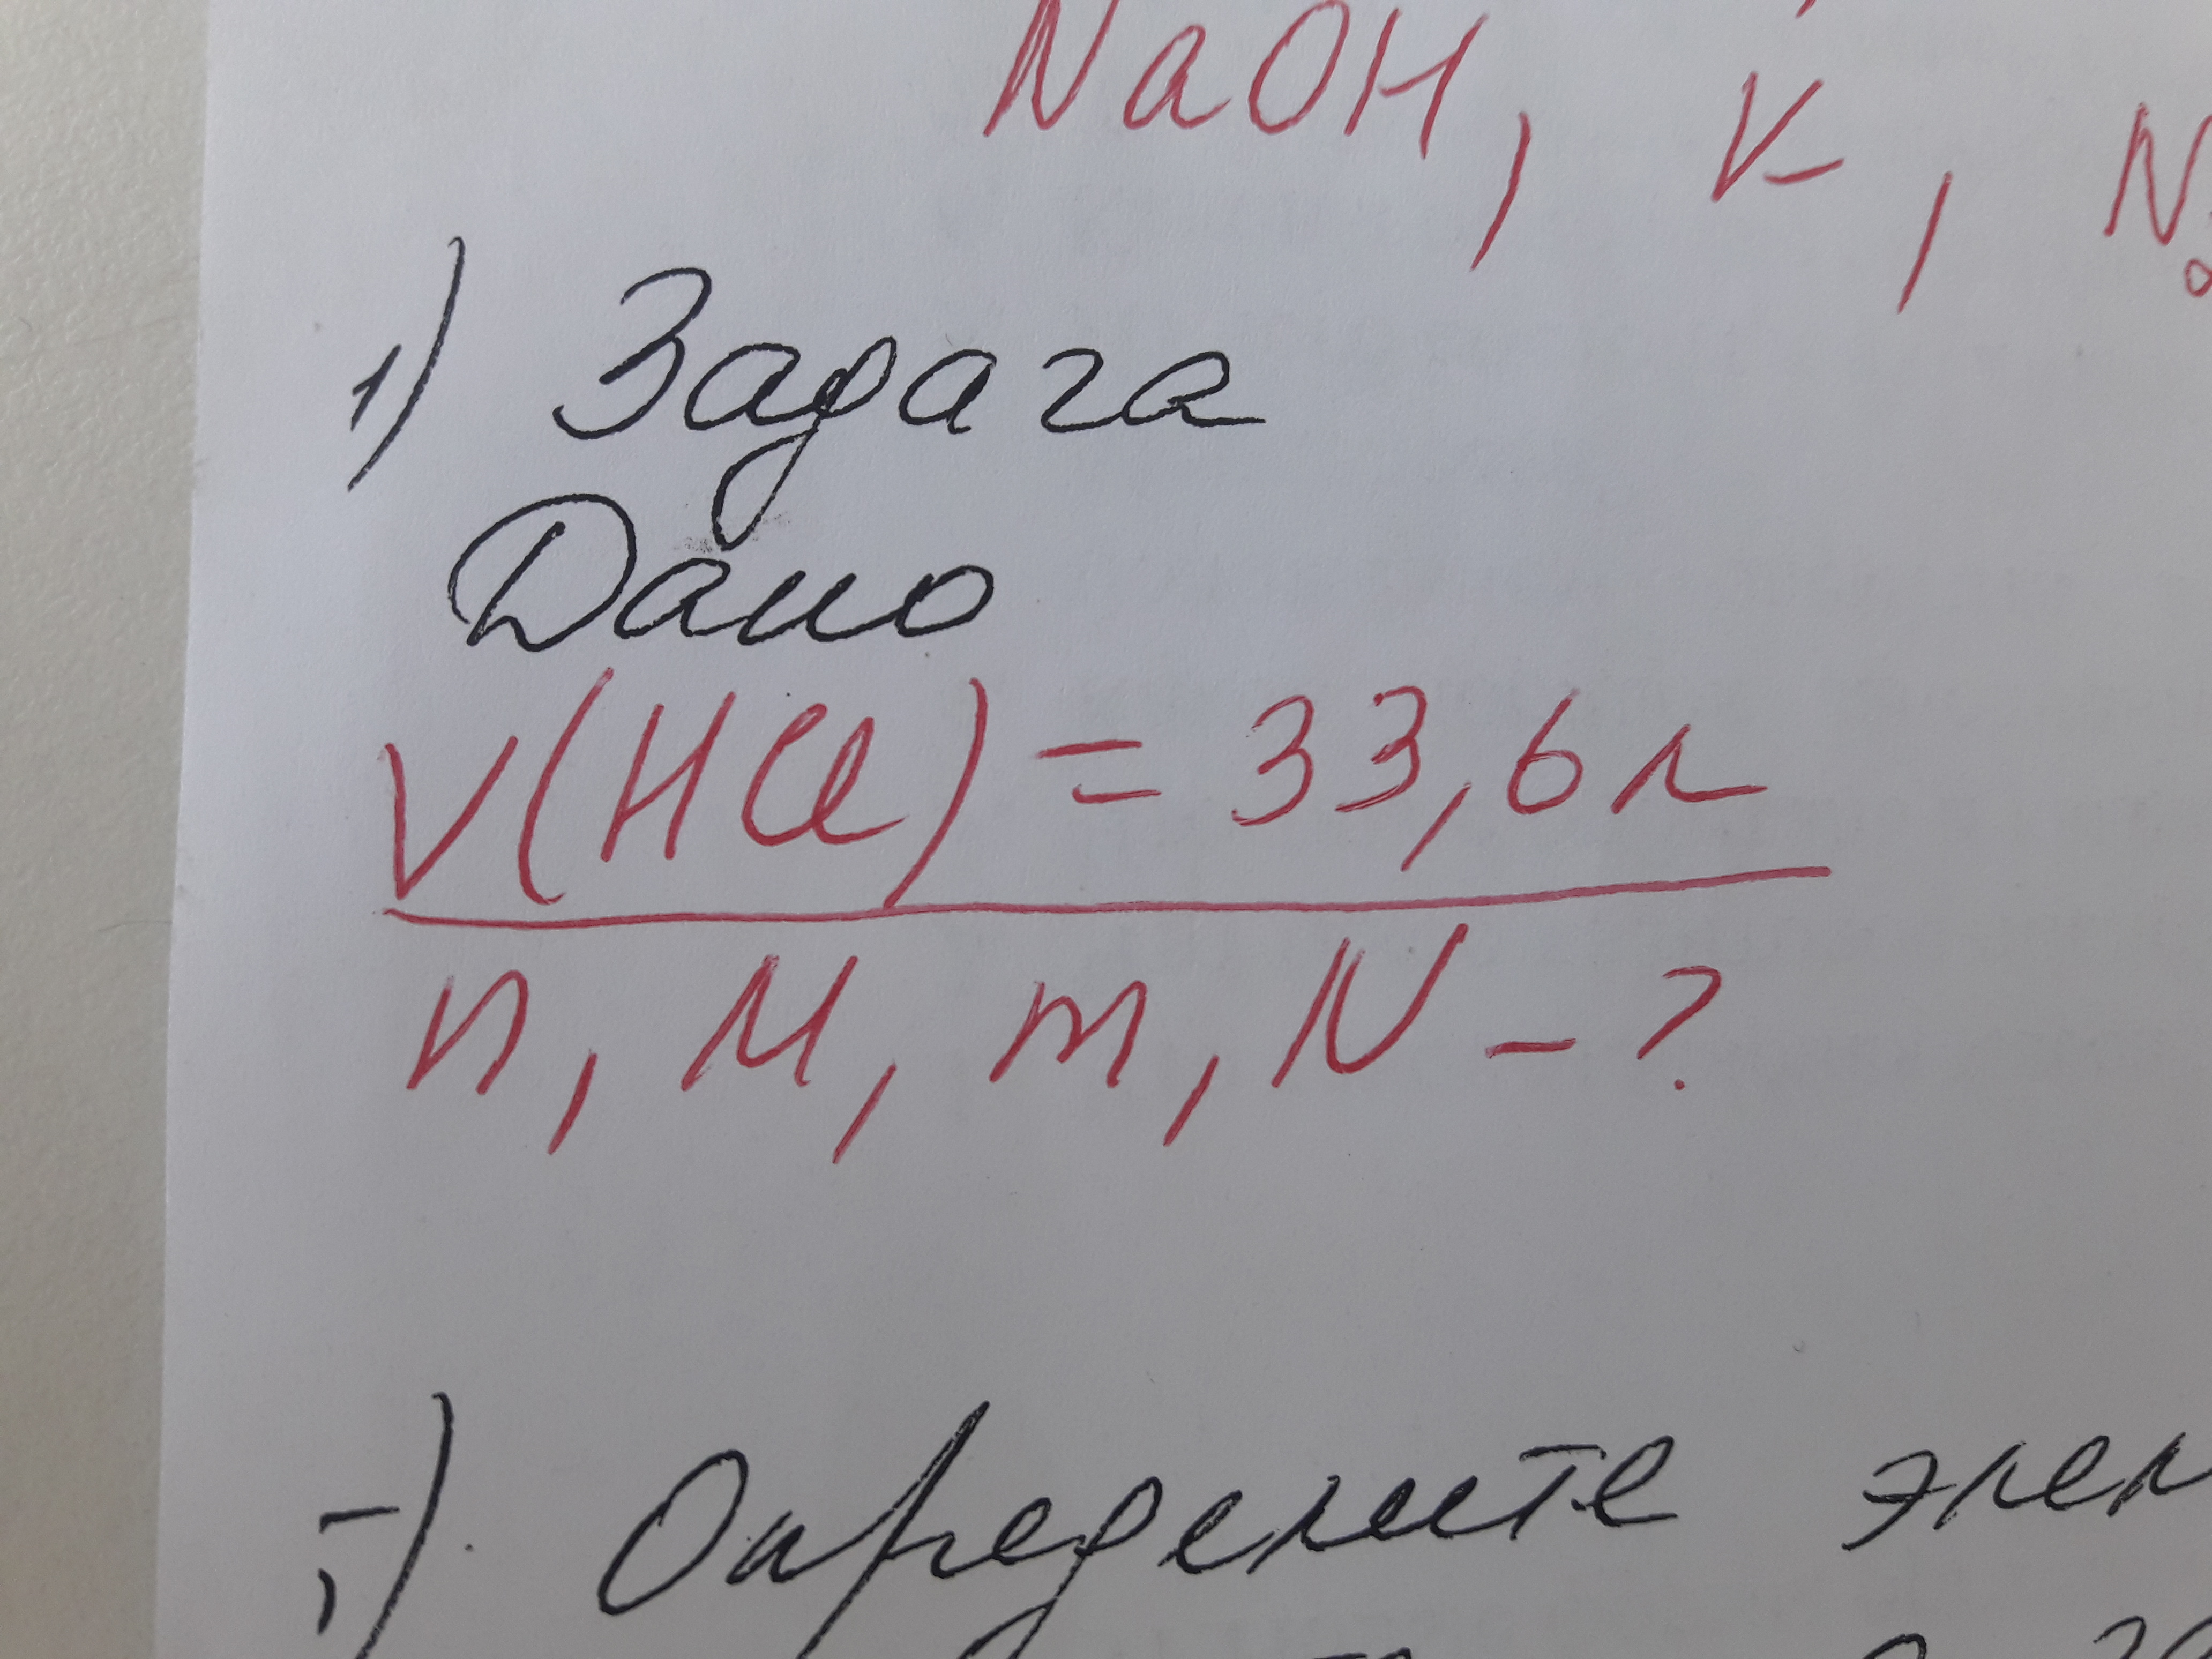 NaOH, K,
1) Задача
Дано
V(HCl) = 33,6 л
n, M, m, N - ?
5) Определите